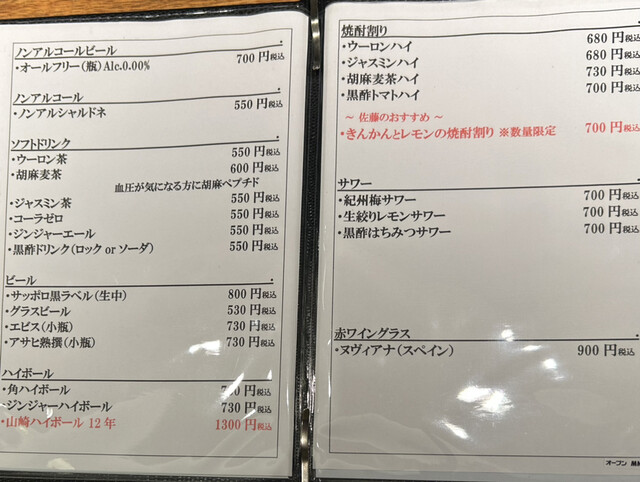 ノンアルコールビール
・オールフリー(瓶)Alc.0.00% 700円税込
ノンアルコール
・ノンアルシャルドネ 550円税込
ソフトドリンク
・ウーロン茶 550円税込
・胡麻麦茶 600円税込
血圧が気になる方に胡麻ペプチド
・ジャスミン茶 550円税込
・コーラゼロ 550円税込
・ジンジャーエール 550円税込
・黒酢ドリンク(ロック or ソーダ) 550円税込
ビール
・サッポロ黒ラベル(生中) 800円税込
・グラスビール 530円税込
・エビス(小瓶) 730円税込
・アサヒ熟撰(小瓶) 730円税込
ハイボール
・角ハイボール 円税込
・ジンジャーハイボール 730円税込
・山崎ハイボール 12年 1300円税込
焼酎割り
・ウーロンハイ 680円税込
・ジャスミンハイ 680円税込
・胡麻麦茶ハイ 730円税込
・黒酢トマトハイ 700円税込
～ 佐藤のおすすめ ～
・きんかんとレモンの焼酎割り ※数量限定 700円税込
サワー
・紀州梅サワー 700円税込
・生絞りレモンサワー 700円税込
・黒酢はちみつサワー 700円税込
赤ワイングラス
・ヌヴィアナ(スペイン) 900円税込
オープン